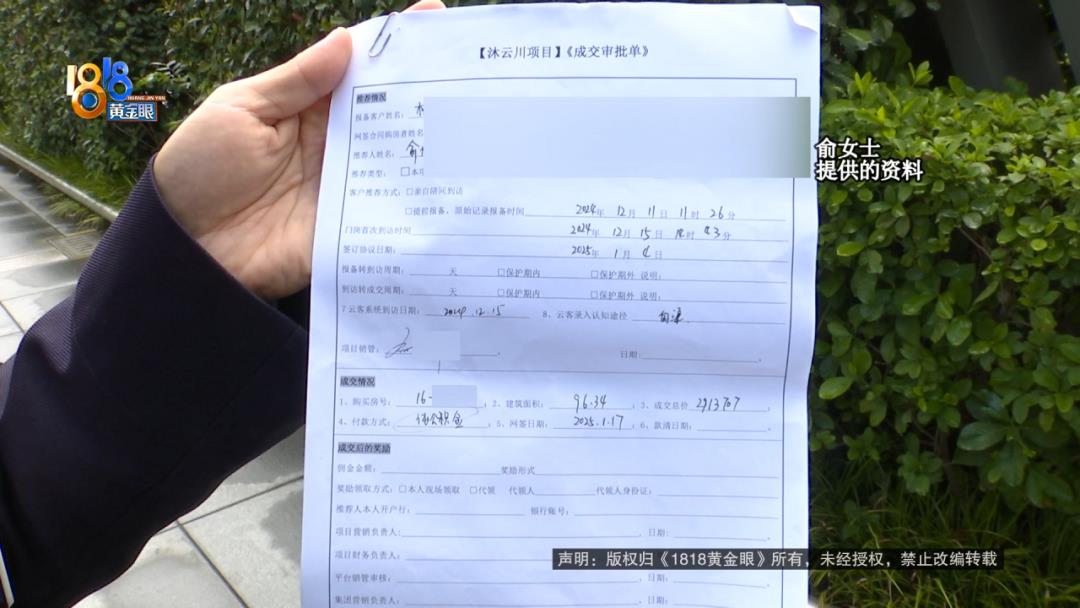 1818
HUANG JIN YAN
黄金眼
【沐云川项目】《成交审批单》
推荐情况
报备客户姓名：
网签合同购房者姓名
推荐人姓名： 俞
推荐类型： □本项
客户推荐方式：□亲自陪同到访
□提前报备，原始记录报备时间 2024年 12月 11日 11时 26分
门岗首次到访时间 2024年 12月 15日 时 分
签订协议日期： 2025年 1月 4日
报备转到访周期： 天 □保护期内 □保护期外 说明：
到访转成交周期： 天 □保护期内 □保护期外 说明：
7云客系统到访日期： 2024.12.15 8、云客录入认知途径
项目销管： 日期：
成交情况
1、购买房号： 16- ；2、建筑面积： 96.34 ；3、成交总价 2913707
4、付款方式： 公积金 ；5、网签日期： 2025.1.17 ；6、款清日期：
成交后的奖励
佣金金额： 奖励形式
奖励领取方式：□本人现场领取 □代领 代领人 代领人身份证：
推荐人本人开户行： 银行账号：
项目营销负责人： 日期：
项目财务负责人：
平台销管审核： 日期：
集团营销负责人： 日期：
俞女士
提供的资料
声明：版权归《1818黄金眼》所有，未经授权，禁止改编转载